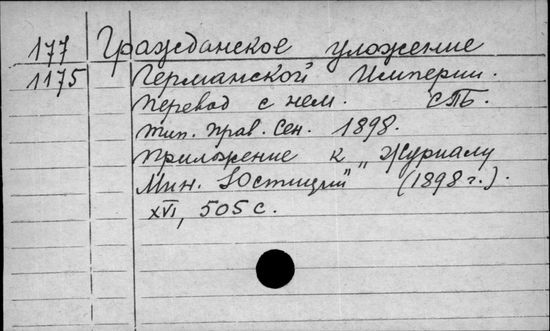 177 Гражданское уложение
1175 Германской Империи.
Перевод с нем. СПБ.
тип. Прав. Сен. 1898.
Приложение к „Журналу
Мин. Юстиции" (1898 г.).
XVI, 505 с.